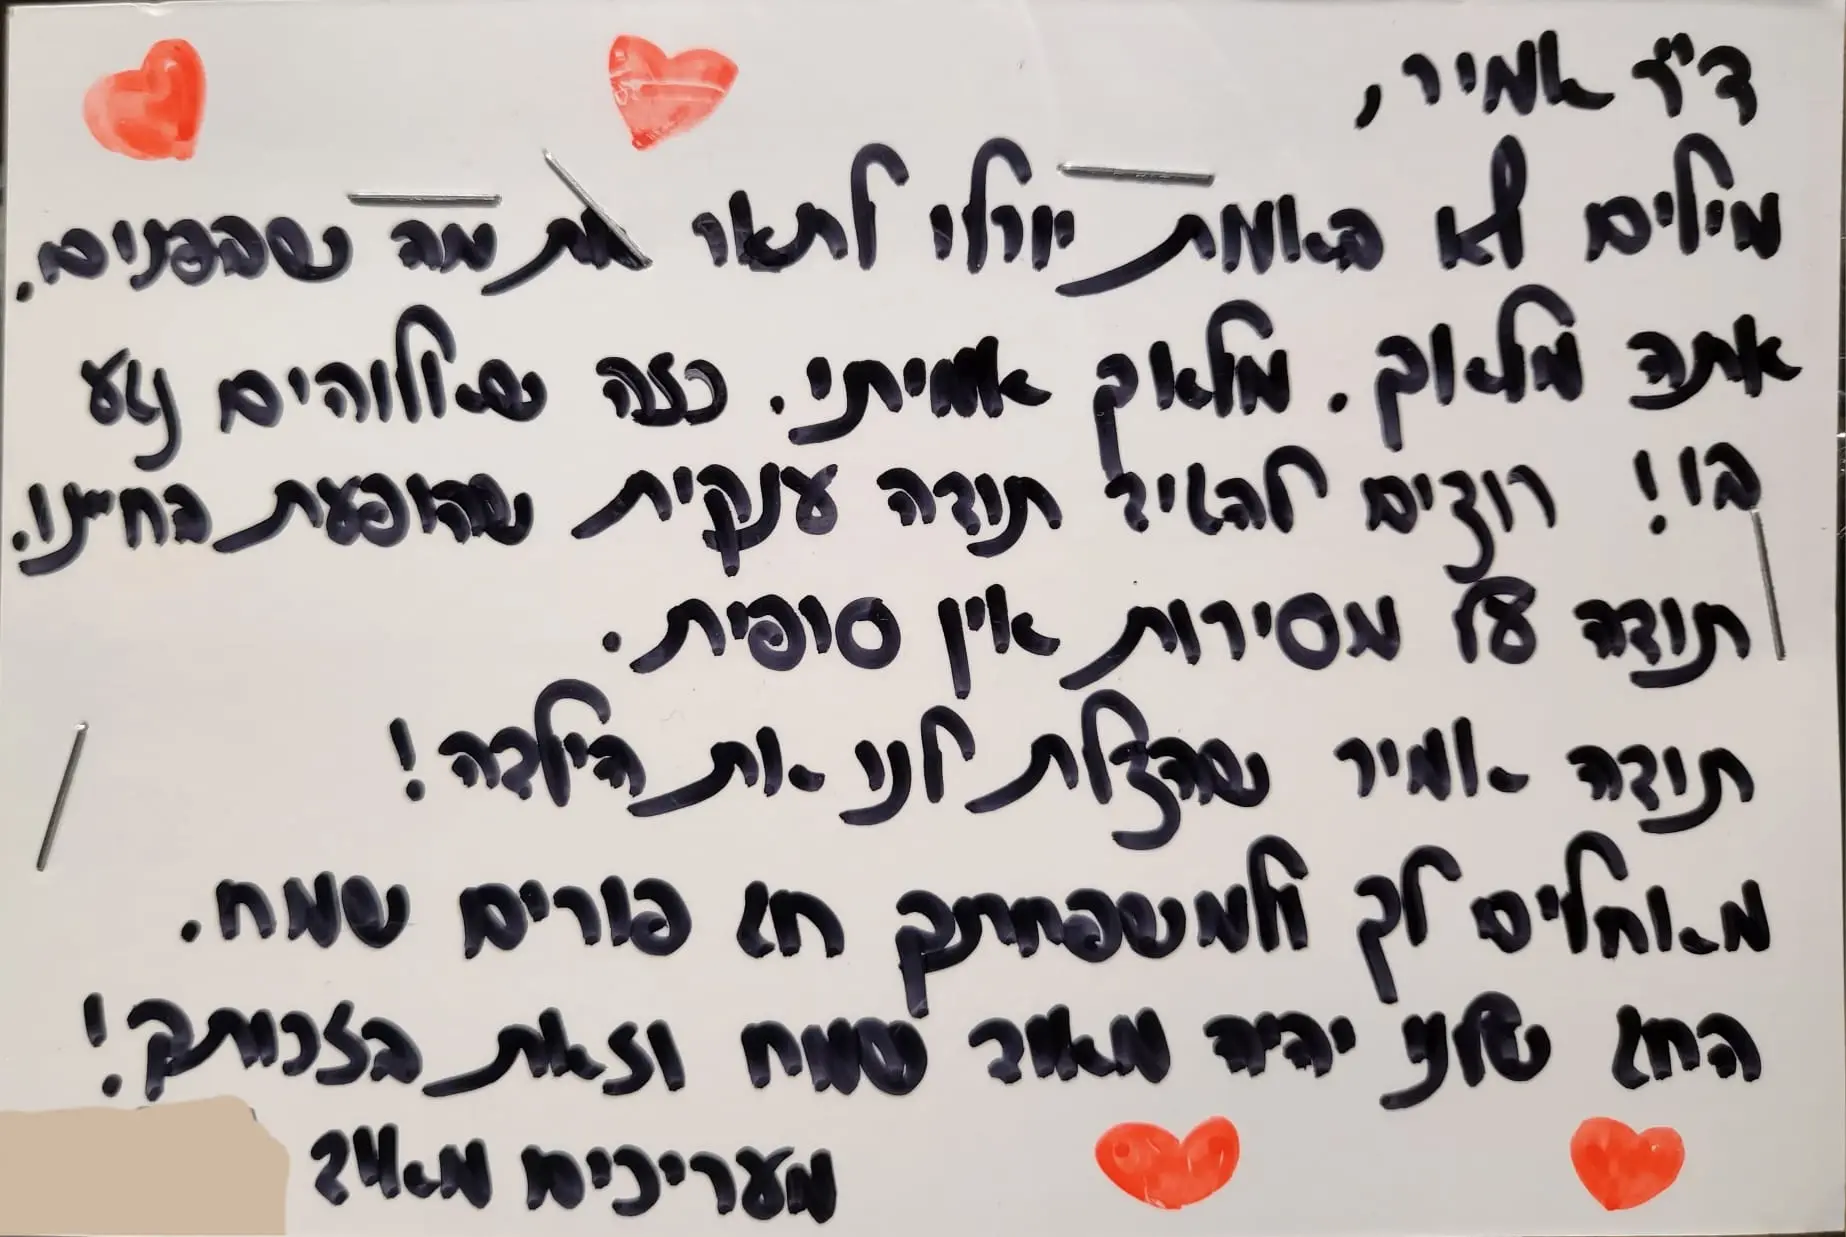 ד״ר אמיר,
מילים לא באמת יורלו לתאר את מה שבפנים.
אתה מלאך. מלאך אמיתי. כזה שאלוהים נגע
בו! רוצים להגיד תודה ענקית שהופעת בחיינו.
תודה על מסירות אין סופית.
תודה אמיר שהצלת לנו את הילדה!
מאחלים לך ולמשפחתך חג פורים שמח.
החג שלנו יהיה מאוד שמח וזאת בזכותך!
מעריכים מאוד